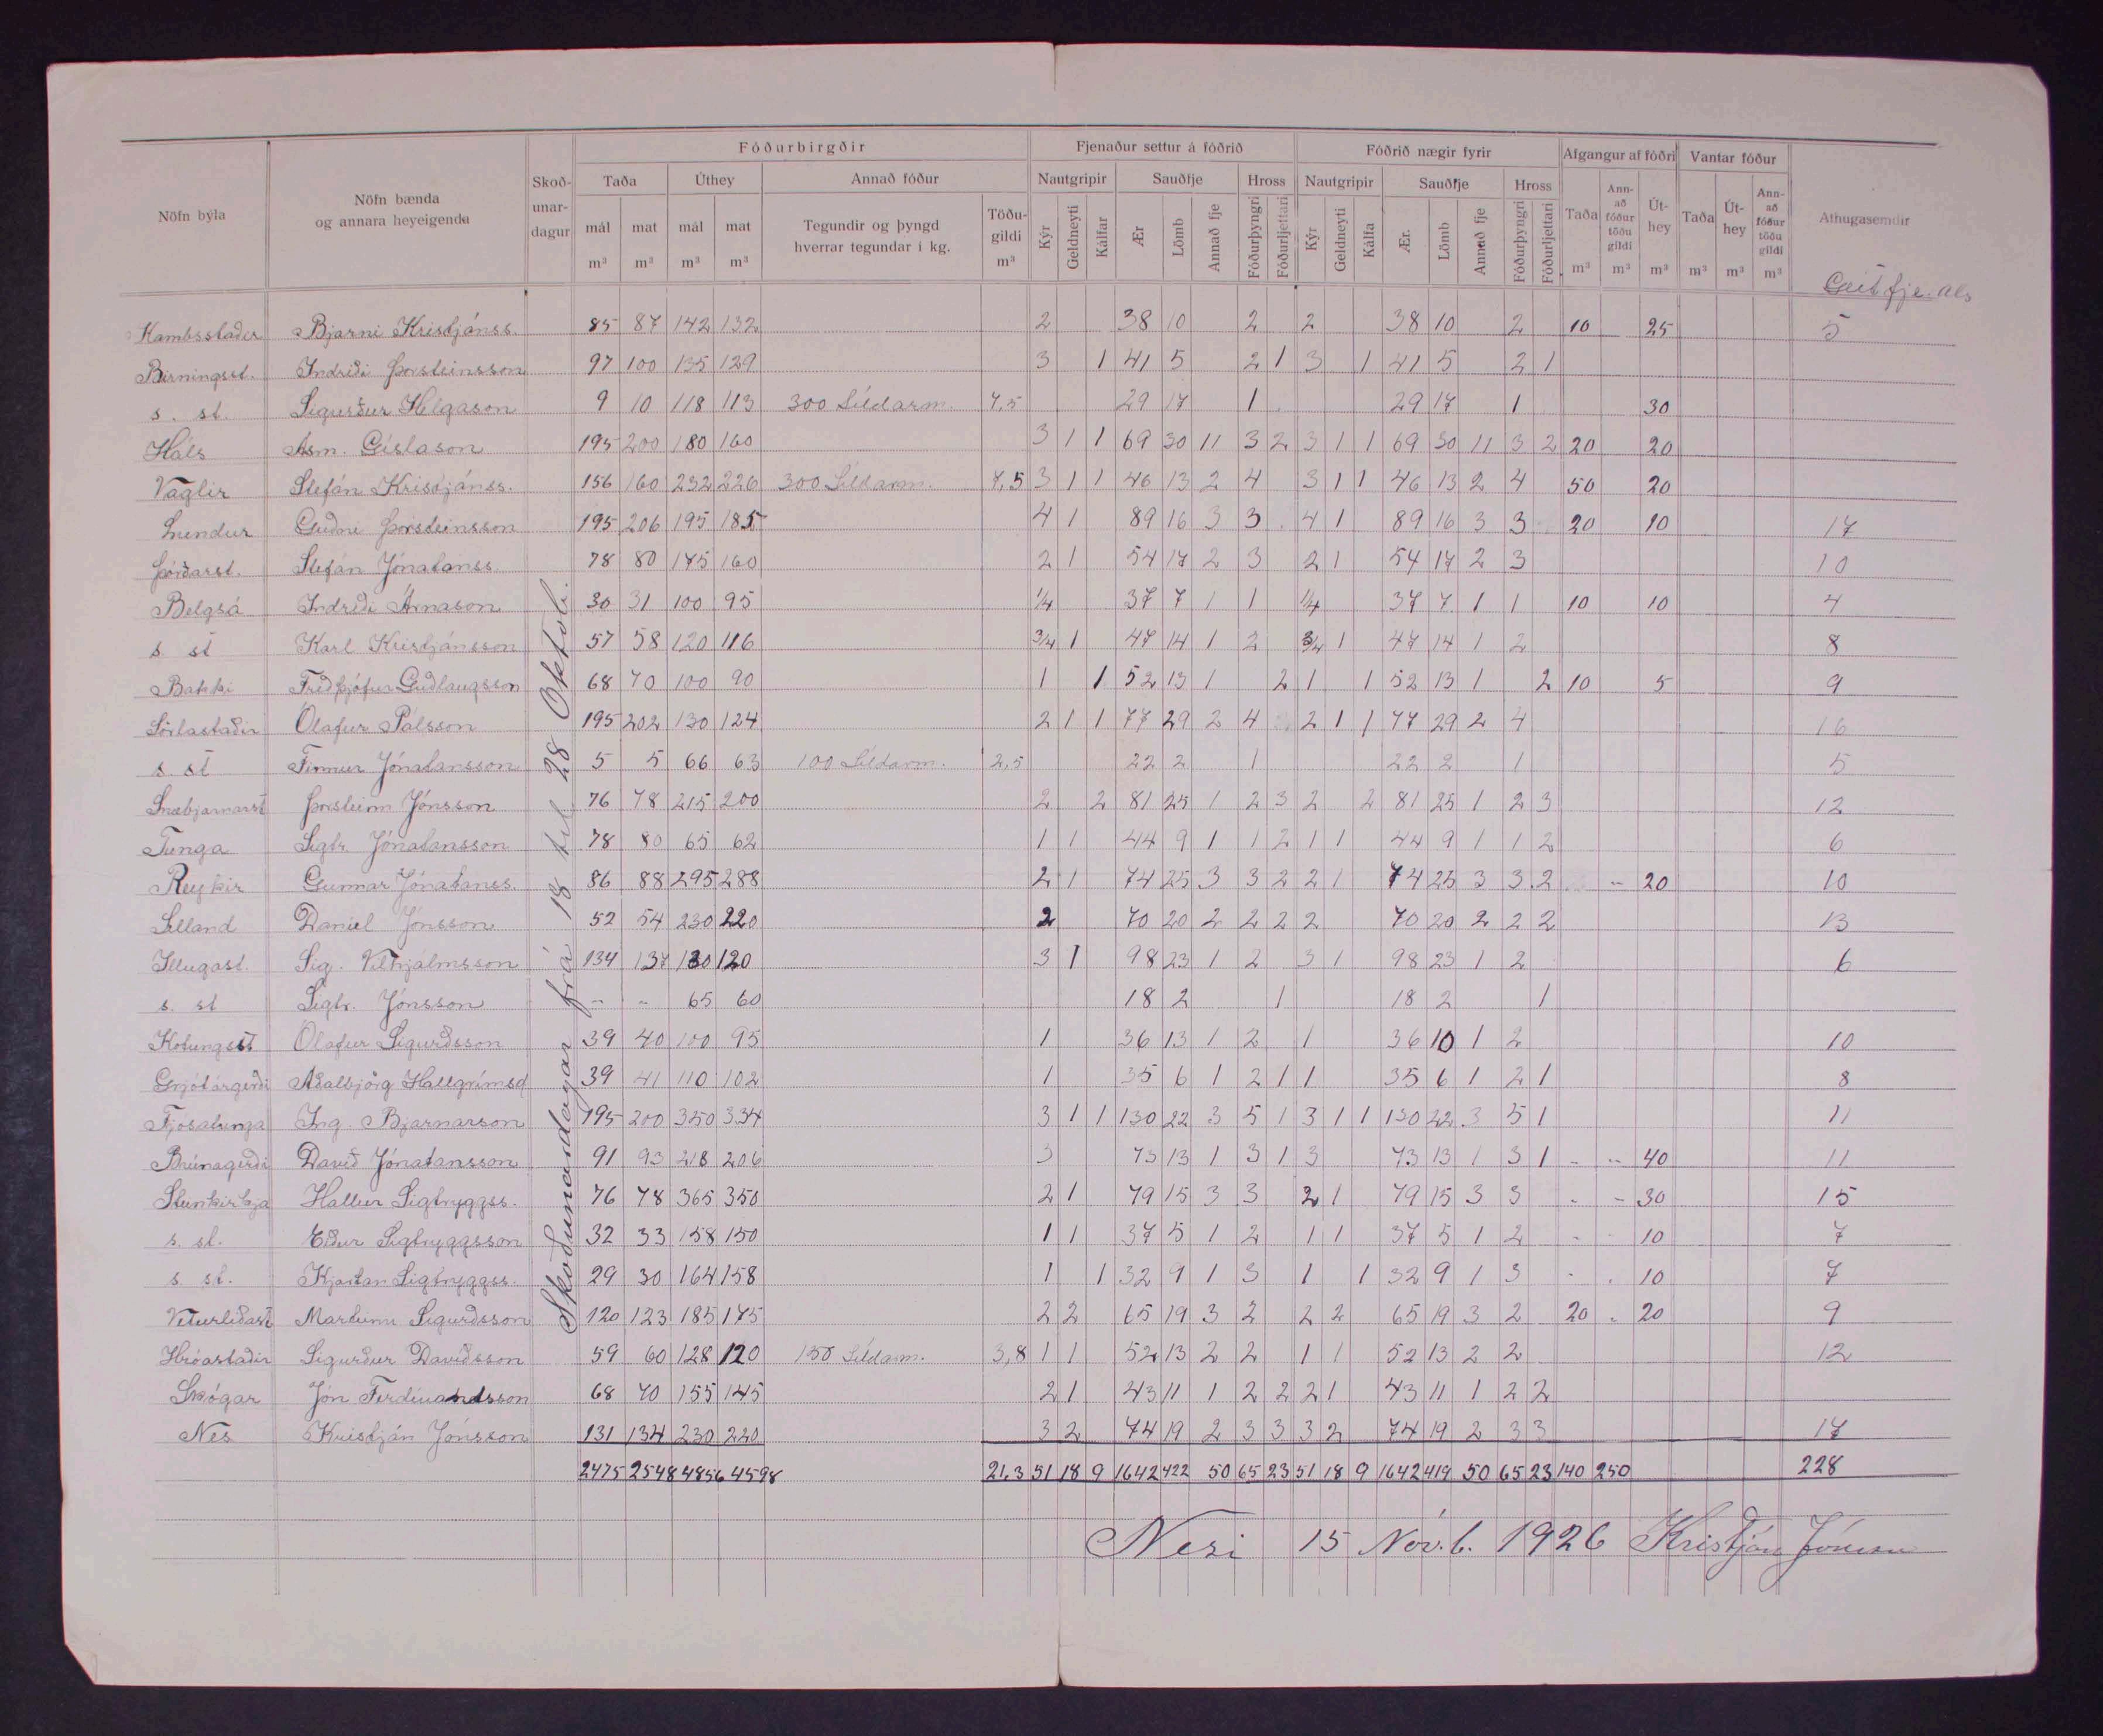 Fóðurbirgðir Fjenaður settur á fóðrið Fóðrið nægir fyrir Afgangur af fóðri Vantar fóður
Nöfn býla Nöfn bænda og annara heyeigenda Skoðunardagur Taða Úthey Annað fóður Nautgripir Sauðfje Hross Nautgripir Sauðfje Hross Taða Annað fóður töðu gildi Úthey Taða Úthey Annað fóður töðu gildi Athugasemdir
mál mat mál mat Tegundir og þyngd hverrar tegundar í kg. Töðugildi Kýr Geldneyti Kálfar Ær Lömb Annað fje Fóðurþyngri Fóðurljettari Kýr Geldneyti Kálfa Ær. Lömb Annað fje Fóðurþyngri Fóðurljettari
m³ m³ m³ m³ m³ m³ m³ m³ m³ m³ m³
Geitfje. als
Skoðunardagar frá 18 til 28 Október
Kambsstaðir Bjarni Kristjánss. 85 87 142 132 2 38 10 2 2 38 10 2 10 25 5
Birningsst. Indriði Þorsteinsson 97 100 135 129 3 1 41 5 2 1 3 1 41 5 2 1
s. st. Sigurður Helgason 9 10 118 113 300 Síldarm. 7,5 29 17 1 29 17 1 30
Háls Ásm. Gíslason 195 200 180 160 3 1 1 69 30 11 3 2 3 1 1 69 30 11 3 2 20 20
Vaglir Stefán Kristjánss. 156 160 232 226 300 Síldarm. 7,5 3 1 1 46 13 2 4 3 1 1 46 13 2 4 50 20
Lundur Guðni Þorsteinsson 195 206 195 185 4 1 89 16 3 3 4 1 89 16 3 3 20 10 17
Þórðarst. Stefán Jónatanss. 78 80 175 160 2 1 54 17 2 3 2 1 54 17 2 3 10
Belgsá Indriði Árnason 30 31 100 95 1/4 37 7 1 1 1/4 37 7 1 1 10 10 4
s st Karl Kristjánsson 57 58 120 116 3/4 1 47 14 1 2 3/4 1 47 14 1 2 8
Bakki Friðþjófur Guðlaugsson 68 70 100 90 1 1 52 13 1 2 1 1 52 13 1 2 10 5 9
Sörlastaðir Ólafur Pálsson 195 202 130 124 2 1 1 77 29 2 4 2 1 1 77 29 2 4 16
s. st Finnur Jónatansson 5 5 66 63 100 Síldarm. 2,5 22 2 1 22 2 1 5
Snæbjarnarst Þorsteinn Jónsson 76 78 215 200 2 2 81 25 1 2 3 2 2 81 25 1 2 3 12
Tunga Sigtr. Jónatansson 78 80 65 62 1 1 44 9 1 1 2 1 1 44 9 1 1 2 6
Reykir Gunnar Jónatanss. 86 88 295 288 2 1 74 25 3 3 2 2 1 74 25 3 3 2 - 20 10
Selland Daníel Jónsson 52 54 230 220 2 70 20 2 2 2 2 70 20 2 2 2 13
Illugast. Sig. Vilhjálmsson 134 137 130 120 3 1 98 23 1 2 3 1 98 23 1 2 6
s. st Sigtr. Jónsson - - 65 60 18 2 1 18 2 1
Kotungsst Ólafur Sigurðsson 39 40 100 95 1 36 13 1 2 1 36 10 1 2 10
Grjótárgerði Aðalbjörg Hallgrímsd 39 41 110 102 1 35 6 1 2 1 1 35 6 1 2 1 8
Fjósatunga Ing. Bjarnarson 195 200 350 334 3 1 1 130 22 3 5 1 3 1 1 130 22 3 5 1 11
Brúnagerði Davíð Jónatansson 91 93 218 206 3 73 13 1 3 1 3 73 13 1 3 1 - - 40 11
Steinkirkja Hallur Sigtryggss. 76 78 365 350 2 1 79 15 3 3 2 1 79 15 3 3 - - 30 15
s. st. Eiður Sigtryggsson 32 33 158 150 1 1 37 5 1 2 1 1 37 5 1 2 - - 10 7
s. st. Kjartan Sigtryggss. 29 30 164 158 1 1 32 9 1 3 1 1 32 9 1 3 - . 10 7
Veturliðast Marteinn Sigurðsson 120 123 185 175 2 2 65 19 3 2 2 2 65 19 3 2 20 . 20 9
Hróarstaðir Sigurður Davíðsson 59 60 128 120 150 Síldarm. 3,8 1 1 52 13 2 2 1 1 52 13 2 2 12
Skógar Jón Ferdinandsson 68 70 155 145 2 1 43 11 1 2 2 2 1 43 11 1 2 2
Nes Kristján Jónsson 131 134 230 220 3 2 74 19 2 3 3 3 2 74 19 2 3 3 17
2475 2548 4856 4598 21,3 51 18 9 1642 422 50 65 23 51 18 9 1642 419 50 65 23 140 250 228
Nesi 15 Nóv.b. 1926 Kristján Jónsson